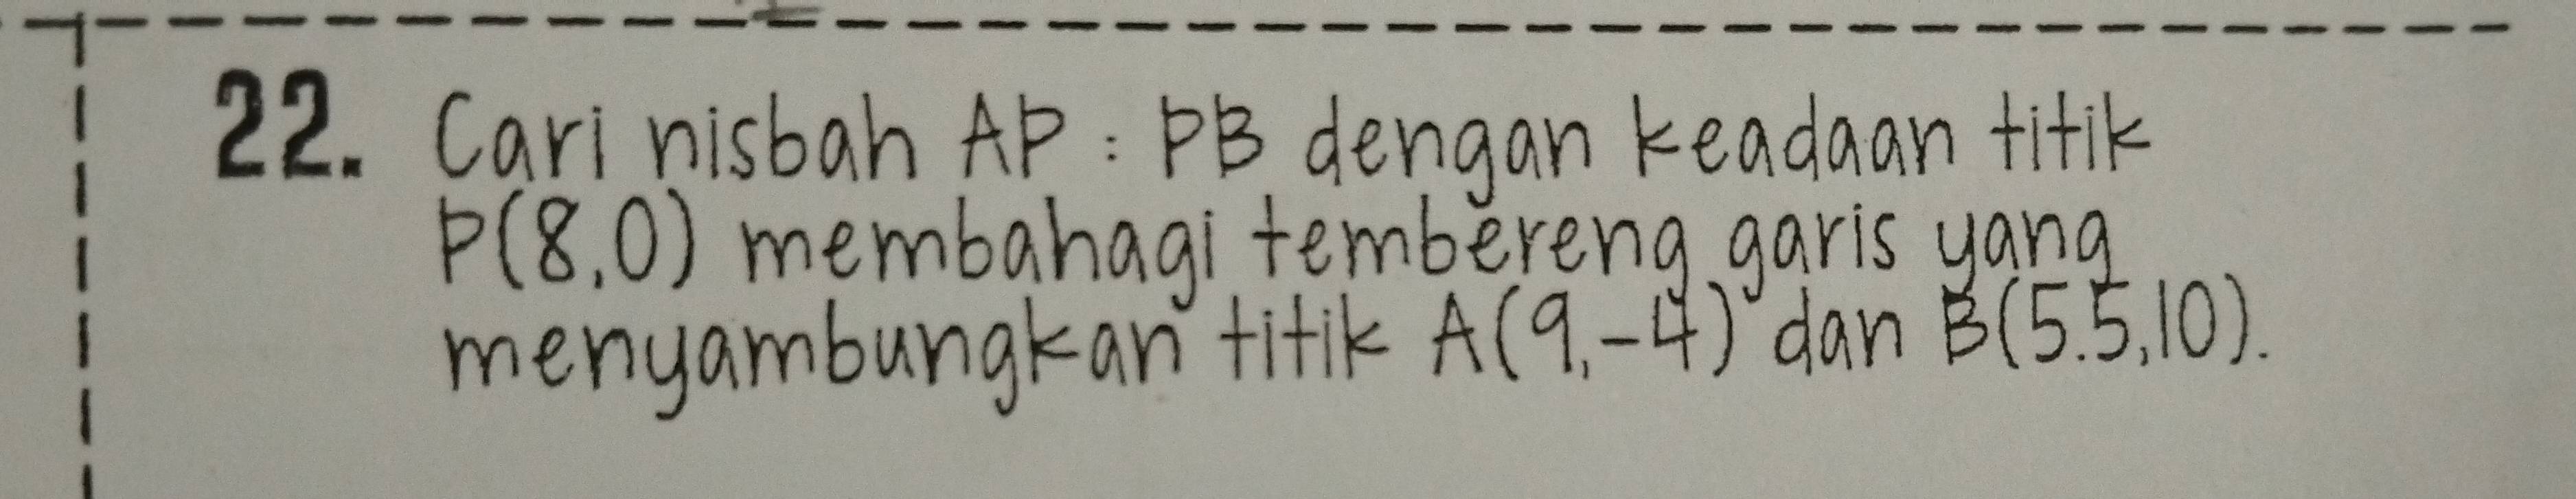 22. Cari nisbah AP : PB dengan keadaan titik
P(8,0) membahagi tembereng garis yang
menyambungkan titik A(9,-4) dan B(5.5,10).